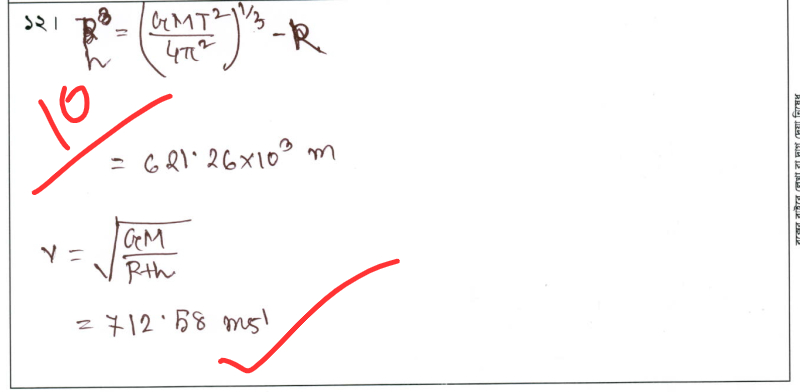 ১২। h = (GMT²/4π²)^1/3 - R
10
= 621.26×10³ m
v = √(GM/R+h)
= 712.58 ms¹